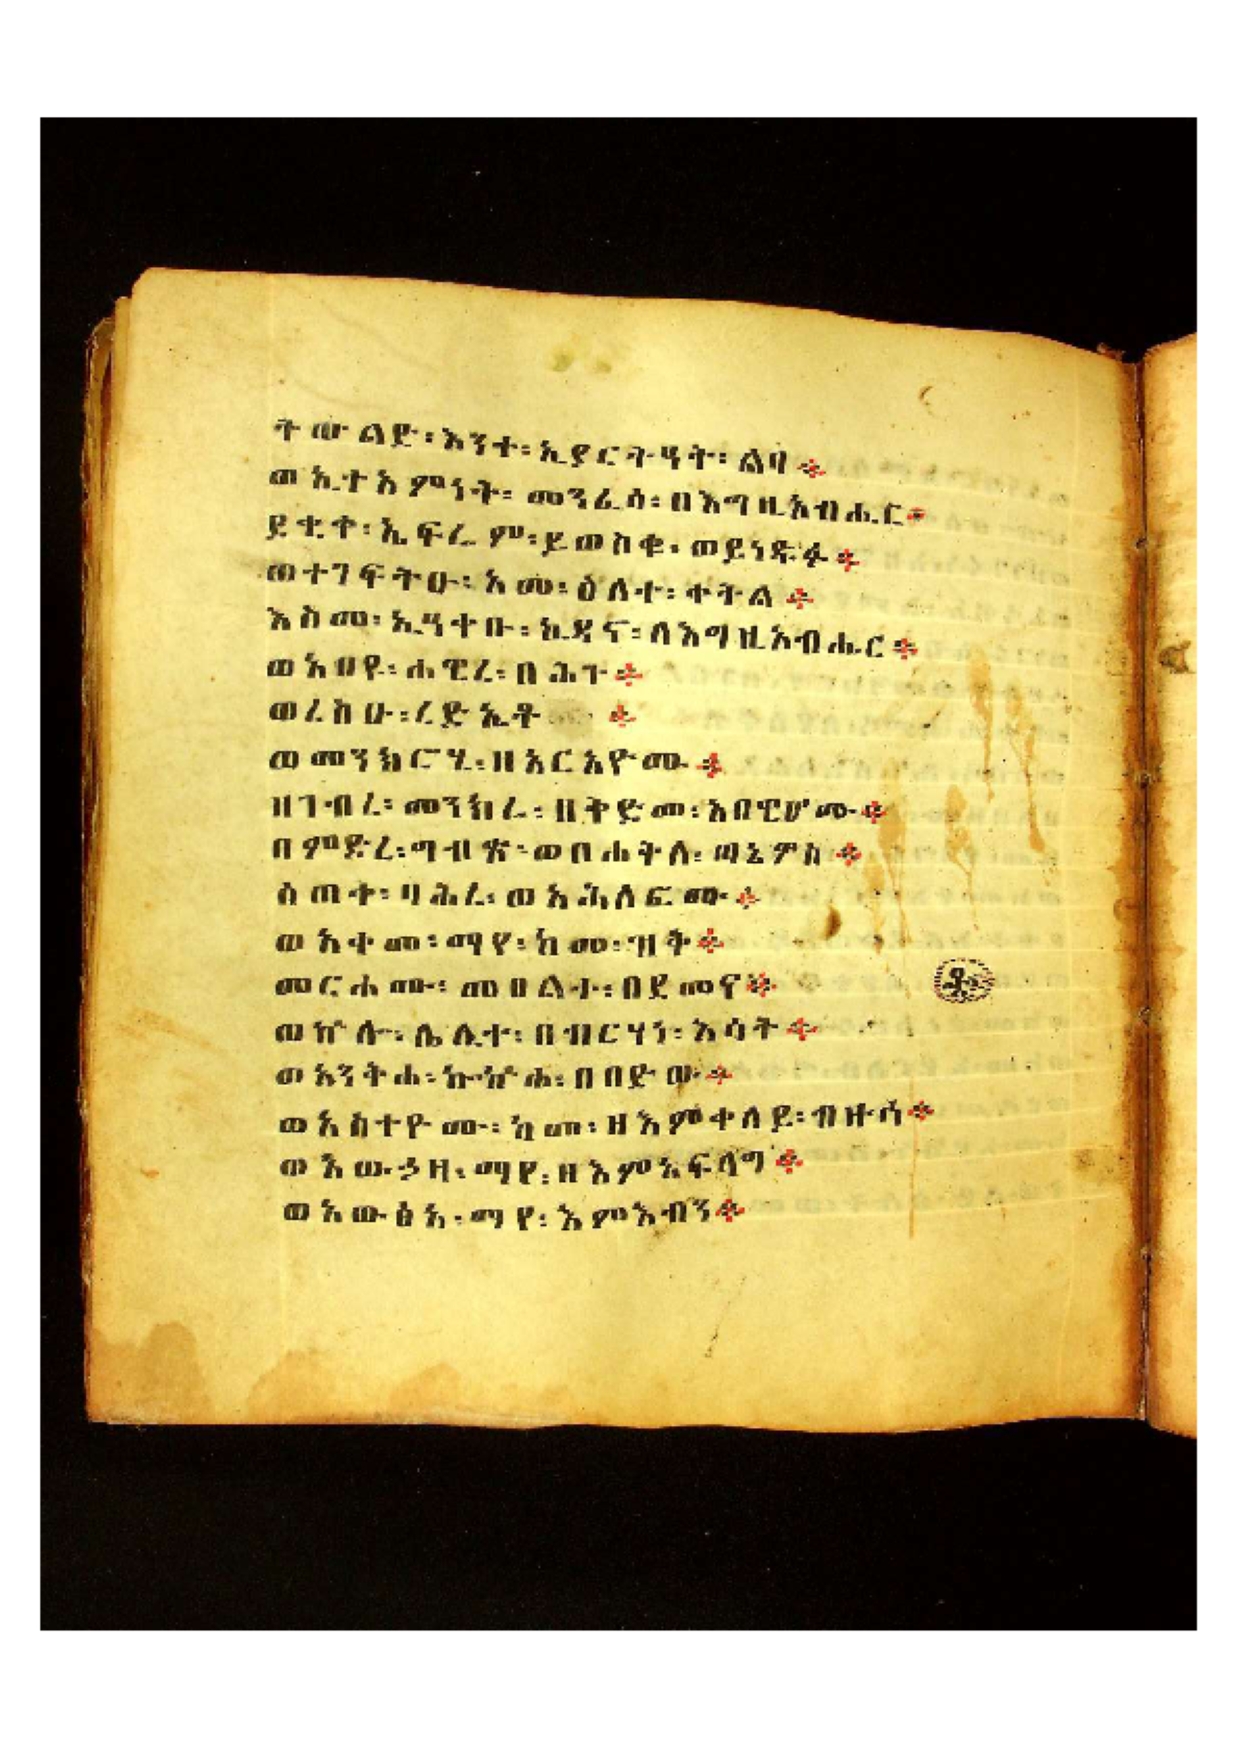 ትውልድ፡እንተ፡ኢያርትዓት፡ልባ፨
ወኢተአምነት፡መንፈሳ፡በእግዚአብሔር፨
ደቂቀ፡ኤፍሬም፡ይወስቁ፡ወይነድፉ፨
ወተገፍትዑ፡አመ፡ዕለተ፡ቀትል፨
እስመ፡ኢዓቀቡ፡ኪዳኖ፡ለእግዚአብሔር፨
ወአበዩ፡ሐዊረ፡በሕጉ፨
ወረስዑ፡ረድኤቶ፨
ወመንክሮሂ፡ዘአርአዮሙ፨
ዘገብረ፡መንክረ፡ዘቅድመ፡አበዊሆሙ፨
በምድረ፡ግብጽ፡ወበሐቅለ፡ጣኔዎስ፨
ሰጠቀ፡ባሕረ፡ወአሕለፎሙ፨
ወአቀመ፡ማየ፡ከመ፡ዝቅ፨
መርሖሙ፡መዐልተ፡በደመና፨
ወኵሉ፡ሌሊተ፡በብርሃነ፡እሳት፨
ወአንቅሐ፡ኰኵሐ፡በበድው፨
ወአስተዮሙ፡ከመ፡ዘእምቀላይ፡ብዙኅ፨
ወአውኃዘ፡ማየ፡ዘእምአፍላግ፨
ወአውፅአ፡ማየ፡እምእብን፨